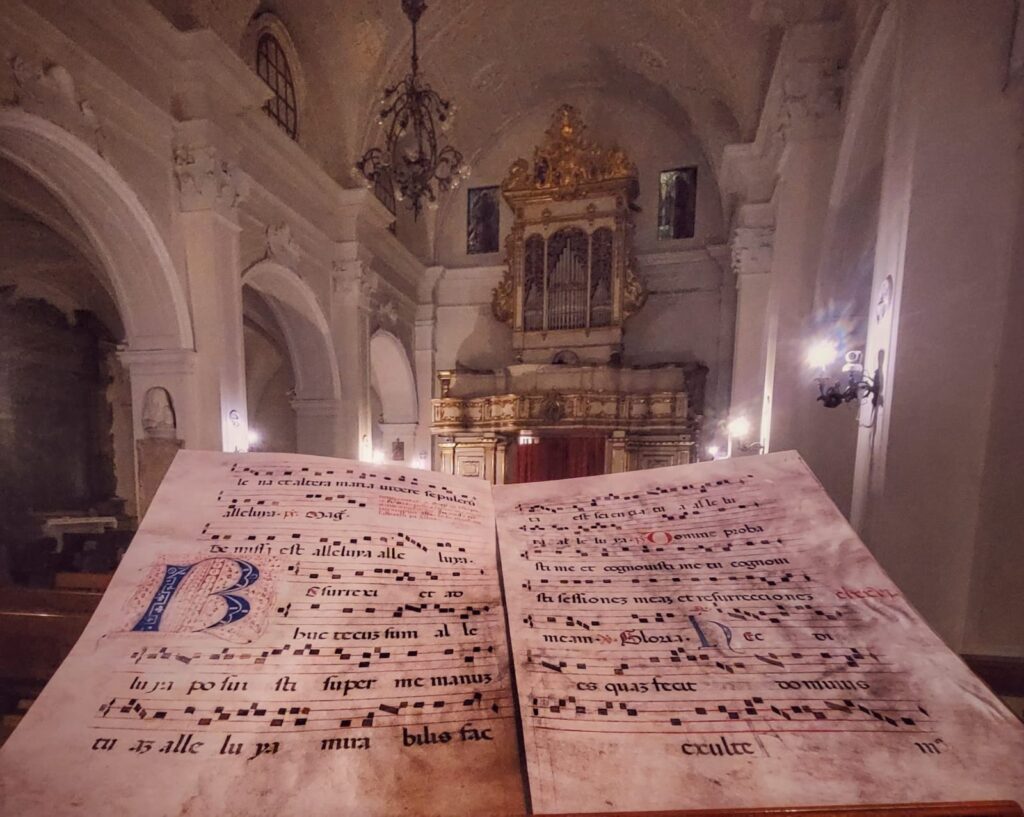 le na et altera maria uidere sepulcrū
alleluya. ps. Mag̃
est alleluya alle luya.
R esurrexi et ad
huc tecuz sum al le
lu ya po sui sti super me manuz
tu az alle lu ya mira bilis fac
ta est sci en cia tu a al le lu
ya al le lu ya. ps. Domine proba
sti me et cognouisti me tu cognoui
sti sessionez meaz et resurreccionez
meam. Gloria. Hec di
es quaz fecit dominus
exulte